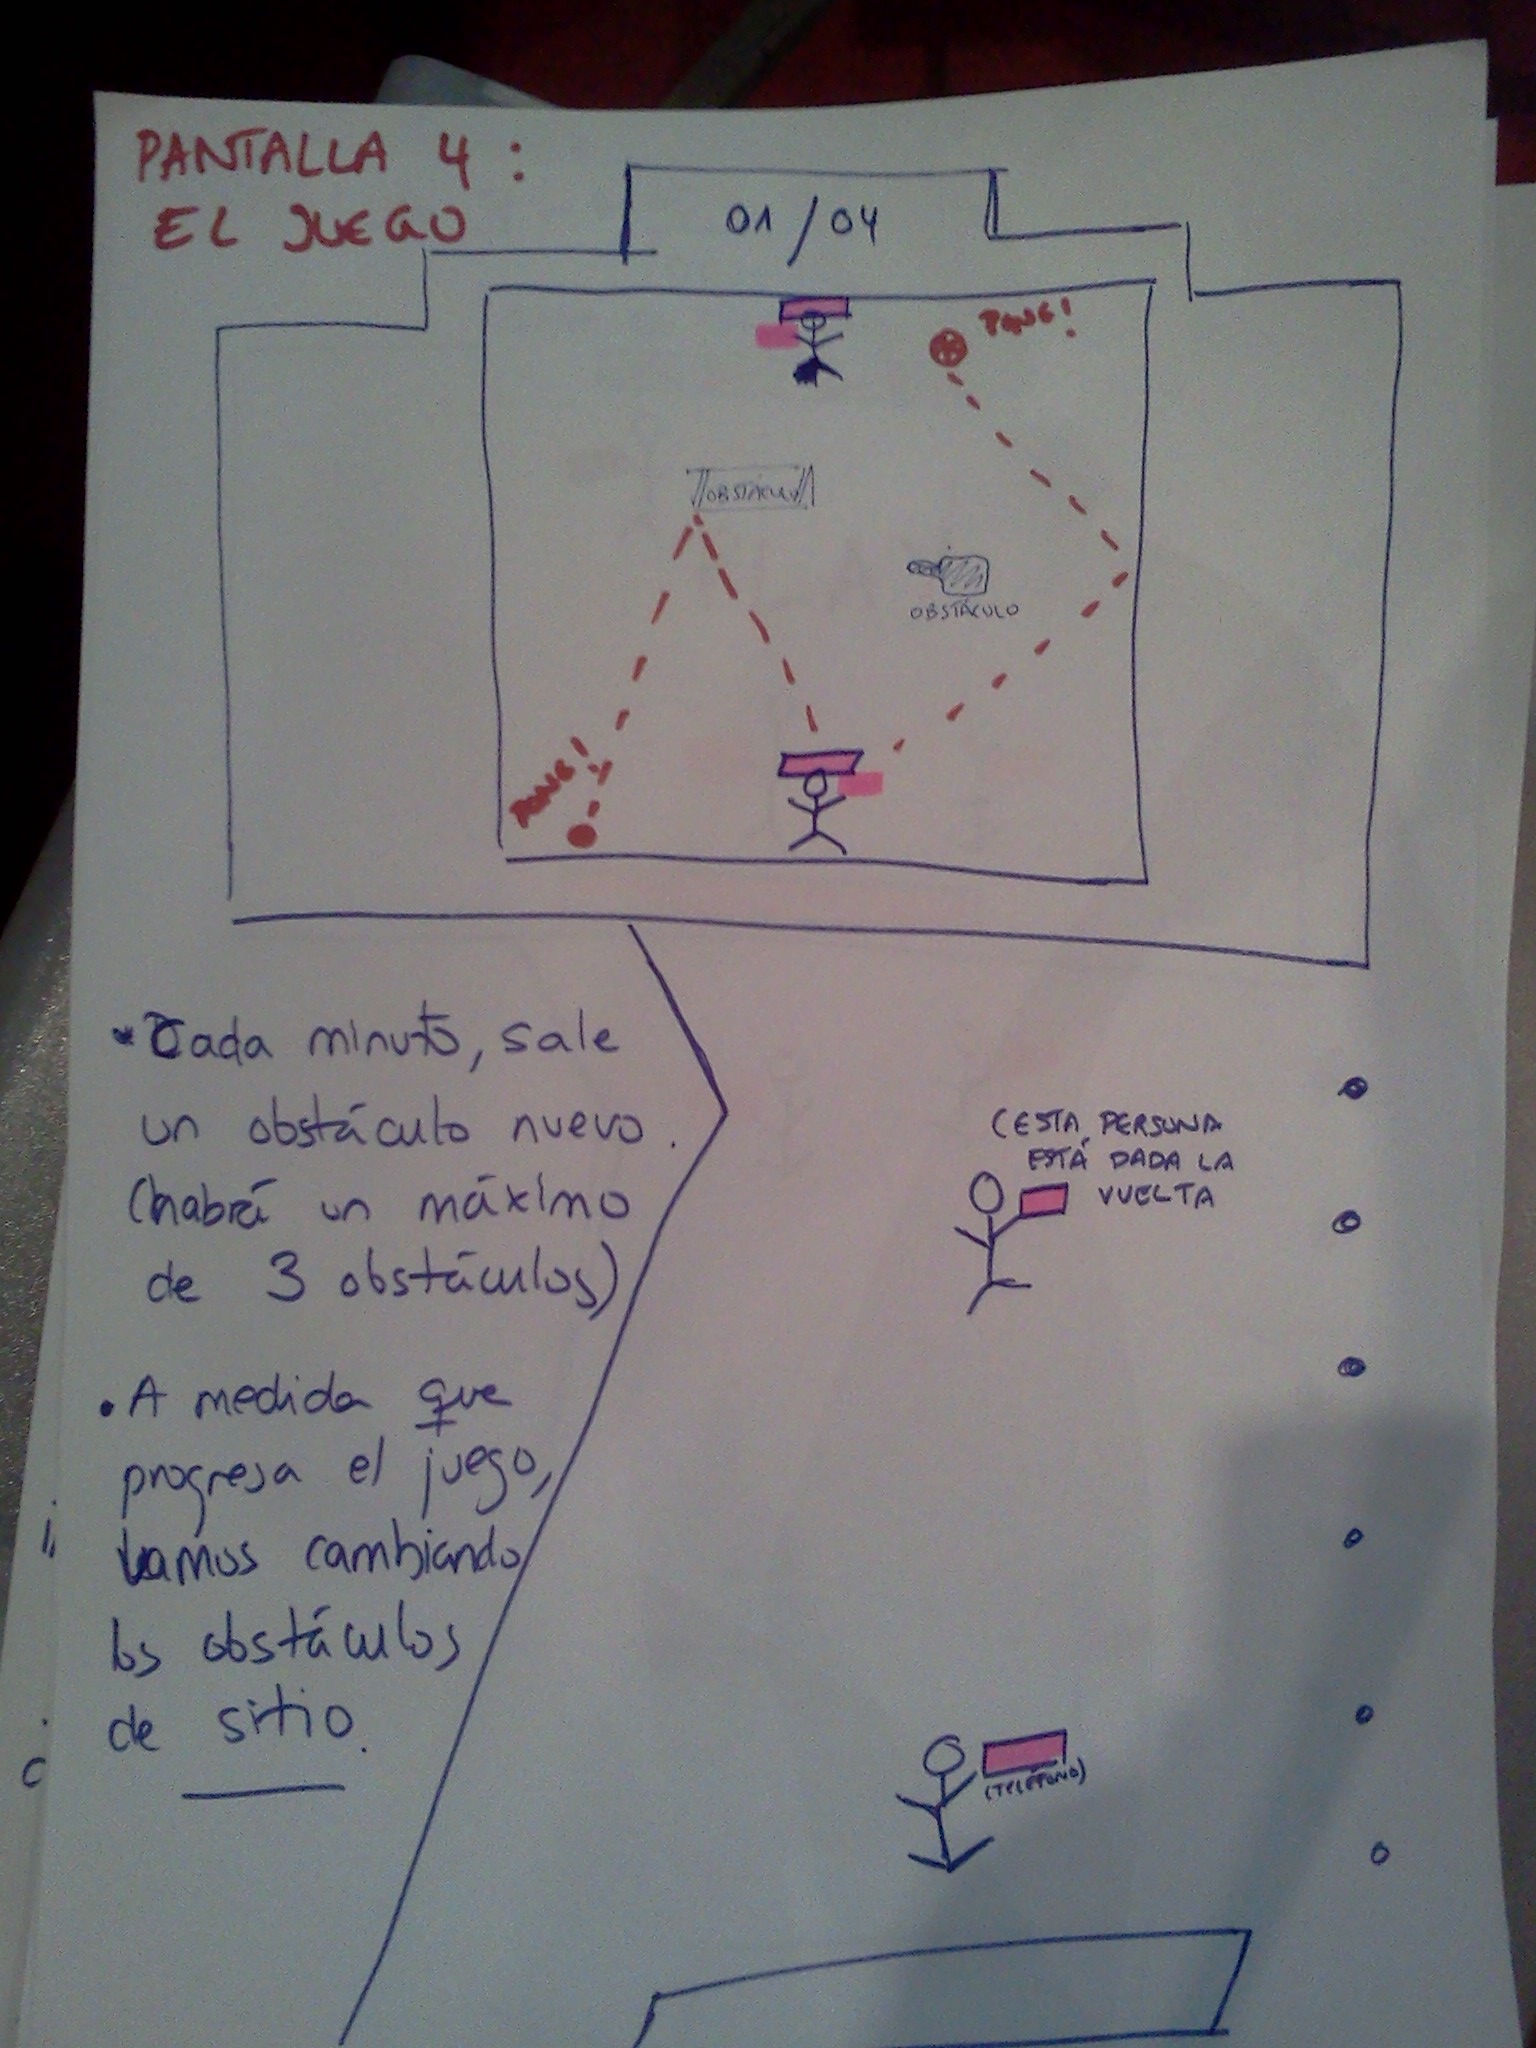 PANTALLA 4:
EL JUEGO
01/04
PONG!
OBSTÁCULO
OBSTÁCULO
PONG!
• Cada minuto, sale
un obstáculo nuevo.
(habrá un máximo
de 3 obstáculos)
• A medida que
progresa el juego,
vamos cambiando
los obstáculos
de sitio.
(ESTA PERSONA
ESTÁ DADA LA
VUELTA
(TELÉFONO)